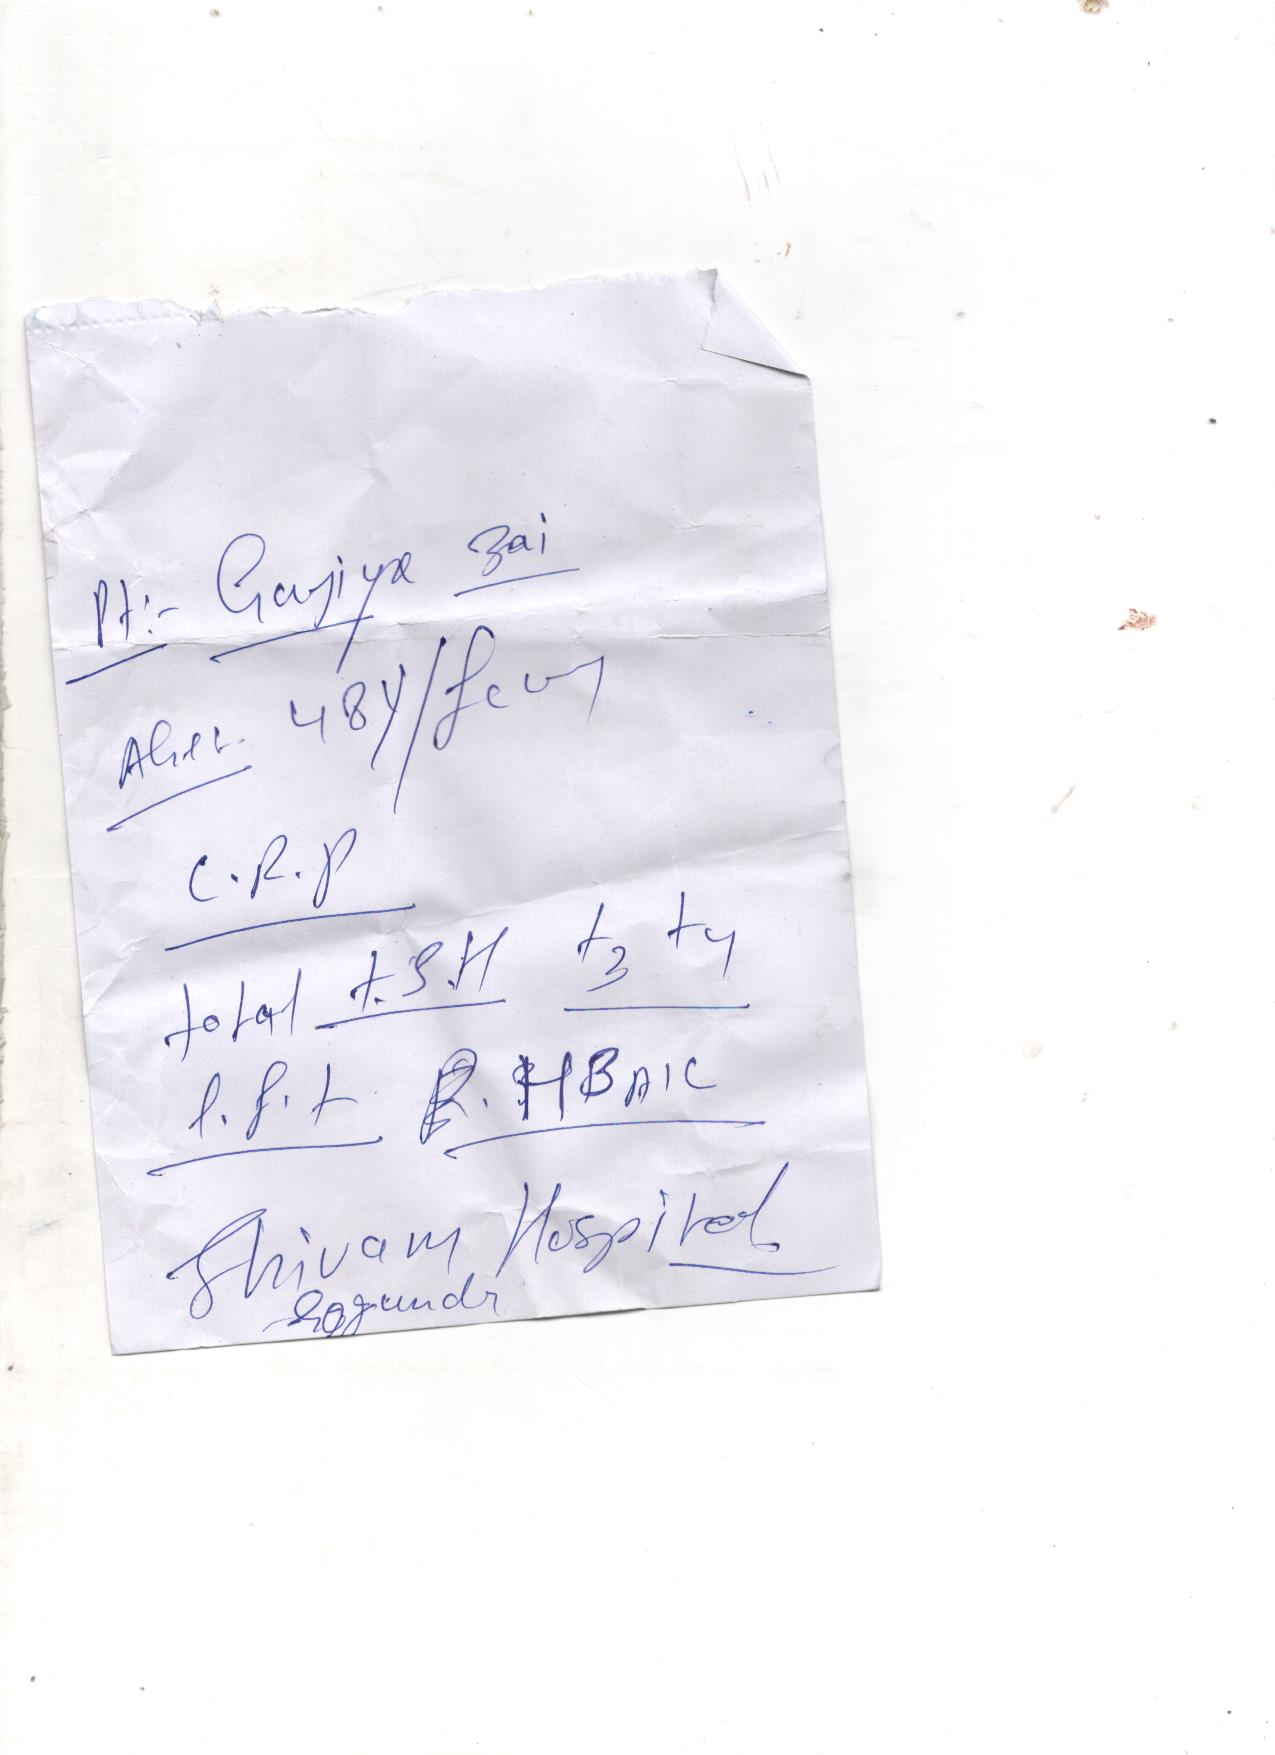 Pt:- Gaujiya Bai
48Y/fem
C.R.P
total t.S.H t3 t4
l.f.t R. HBA1C
Shivam Hospital